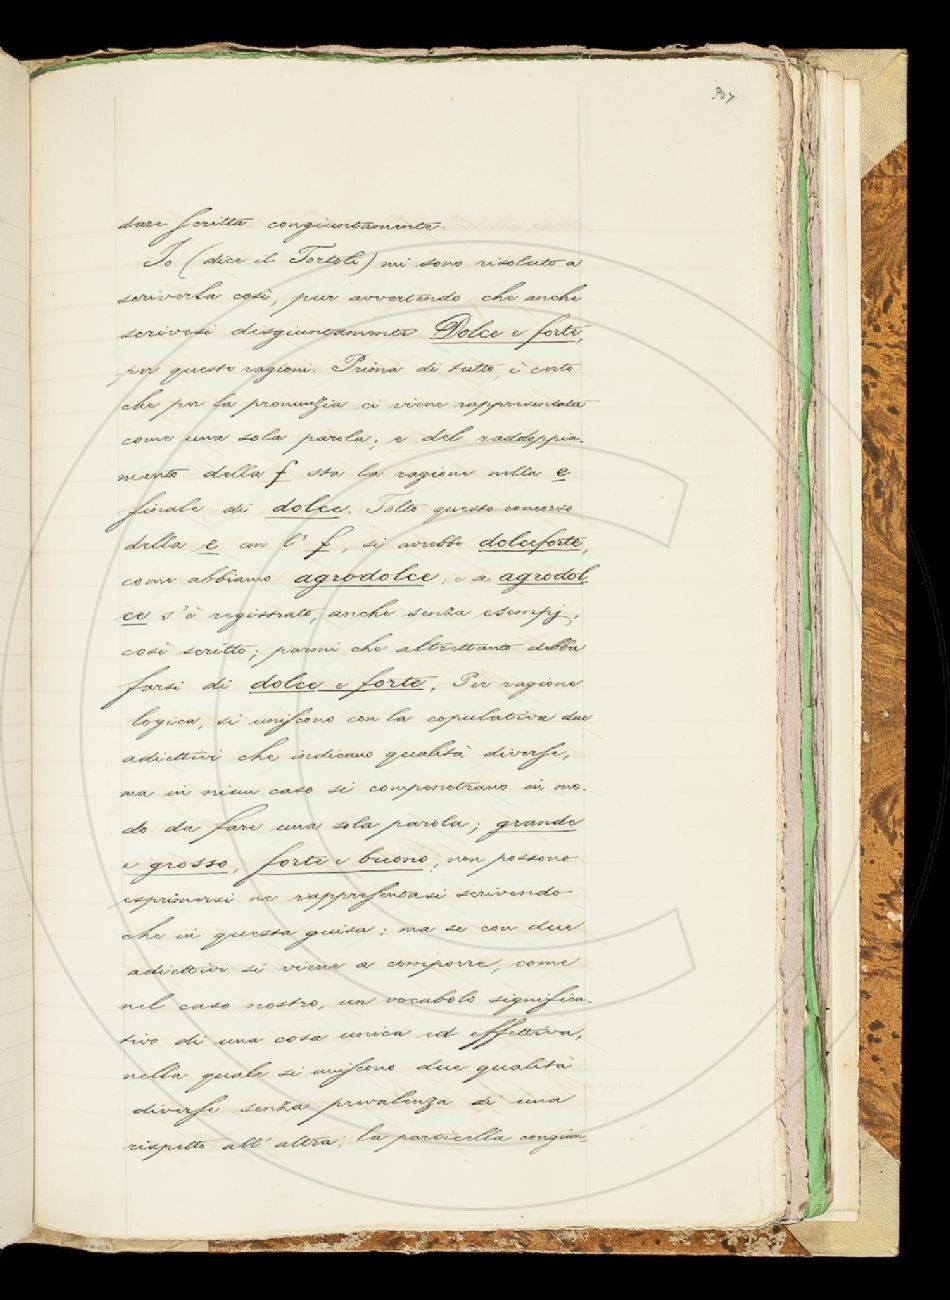 87
dare scritta congiuntamente.
Io (dice il Tortoli) mi sono risoluto a
scriverla così, pur avvertendo che anche
scrivesi disgiuntamente Dolce e forte,
per queste ragioni. Prima di tutto, è certo
che per la pronunzia ci viene rappresentata
come una sola parola; e del raddoppia-
mento della f sta la ragione nella e
finale di dolce. Tolto questo concorso
della e con l' f, si avrebbe dolceforte,
come abbiamo agrodolce; e a agrodol
ce s'è registrato, anche senza esempj,
così scritto; parmi che altrettanto debba
farsi di dolce e forte. Per ragione
logica, si uniscono con la copulativa due
adiettivi che indicano qualità diverse,
ma in niun caso si compenetrano in mo-
do da fare una sola parola; grande
e grosso, forte e buono, non possono
esprimersi ne rappresentasi scrivendo
che in questa guisa: ma se con due
adiettivi si viene a comporre, come
nel caso nostro, un vocabolo significa-
tivo di una cosa unica ed effettiva,
nella quale si uniscono due qualità
diverse senza prevalenza di una
rispetto all'altra, la particella congiun-